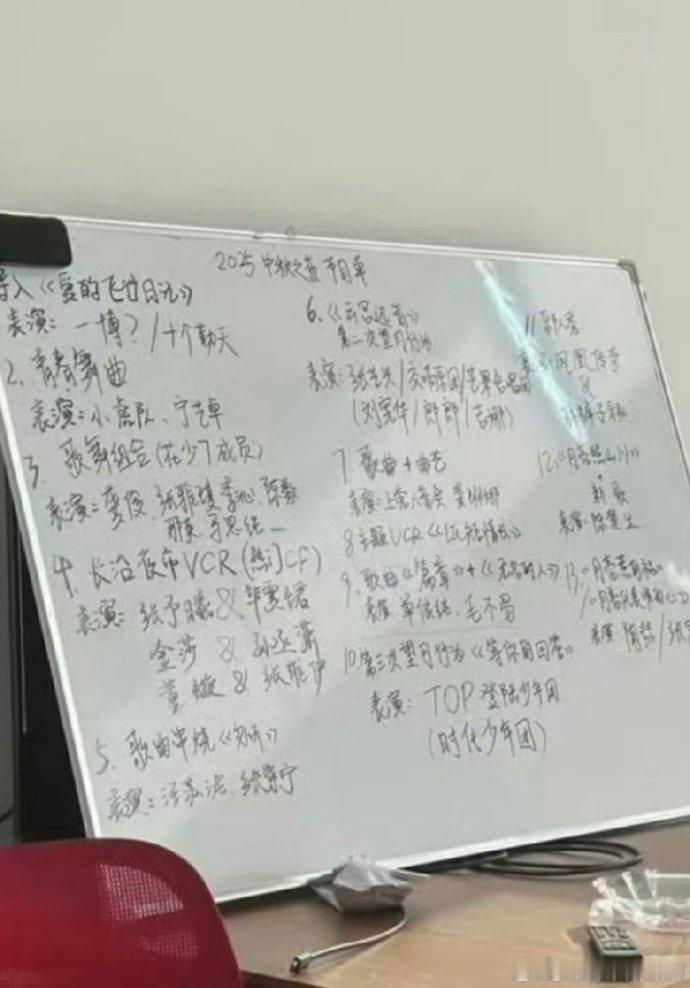 2025中秋之夜节目单
导入《爱的飞行日记》
表演：一博？/十个勤天
2、青春舞曲
表演：小虎队、宁艺卓
3、歌舞组合（花少7成员）
表演：龚俊、张雅琪、李沁、陈数
那英、李思纯…
4、长治夜市VCR（热门CP）
表演：张予曦&
金莎&孙丞潇
董璇&张维伊
5、歌曲串烧《
表演：汪苏泷、张紫宁
6、《云宫迅音》
第二次望月行动
表演：张艺兴/交响乐团/苹果合唱团
（刘宪华/郎郎/吉娜）
7、歌曲+曲艺
表演：上官
8、主题VCR《
9、歌曲《篇章》+《无名的人》
表演：单依纯、毛不易
10、第三次望月行动《等你的回答》
表演：TOP登陆少年团
（时代少年团）
11
表演：凤凰传奇
&
12、《月亮照山川》
+
新歌
表演：陈楚生
13、《月亮
表演